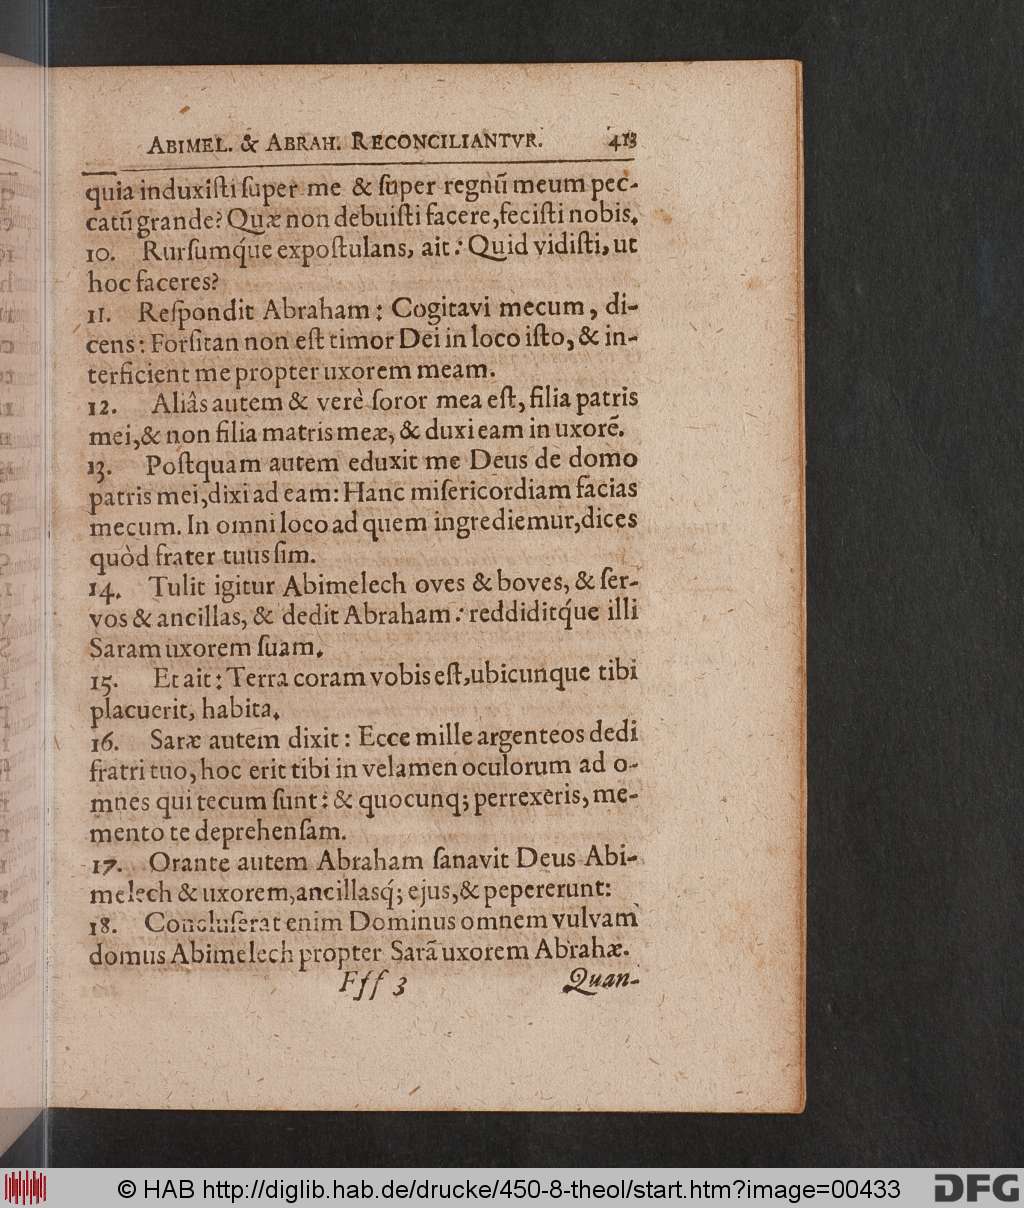 ABIMEL. & ABRAH. RECONCILIANTVR. 413
quia induxiſti ſuper me & ſuper regnũ meum pec-
catũ grande? Quæ non debuiſti facere, feciſti nobis.
10. Rurſumq́ue expoſtulans, ait: Quid vidiſti, ut
hoc faceres?
11. Reſpondit Abraham: Cogitavi mecum, di-
cens: Forſitan non eſt timor Dei in loco iſto, & in-
terficient me propter uxorem meam.
12. Aliâs autem & verè ſoror mea eſt, filia patris
mei, & non filia matris meæ, & duxi eam in uxorẽ.
13. Poſtquam autem eduxit me Deus de domo
patris mei, dixi ad eam: Hanc miſericordiam facias
mecum. In omni loco ad quem ingrediemur, dices
quòd frater tuus ſim.
14. Tulit igitur Abimelech oves & boves, & ſer-
vos & ancillas, & dedit Abraham: reddiditq́ue illi
Saram uxorem ſuam.
15. Et ait: Terra coram vobis eſt, ubicunque tibi
placuerit, habita.
16. Saræ autem dixit: Ecce mille argenteos dedi
fratri tuo, hoc erit tibi in velamen oculorum ad o-
mnes qui tecum ſunt: & quocunq; perrexeris, me-
mento te deprehenſam.
17. Orante autem Abraham ſanavit Deus Abi-
melech & uxorem, ancillasq́; ejus, & pepererunt:
18. Concluſerat enim Dominus omnem vulvam
domus Abimelech propter Sarã uxorem Abrahæ.
Fff 3 Quan-
© HAB http://diglib.hab.de/drucke/450-8-theol/start.htm?image=00433 DFG